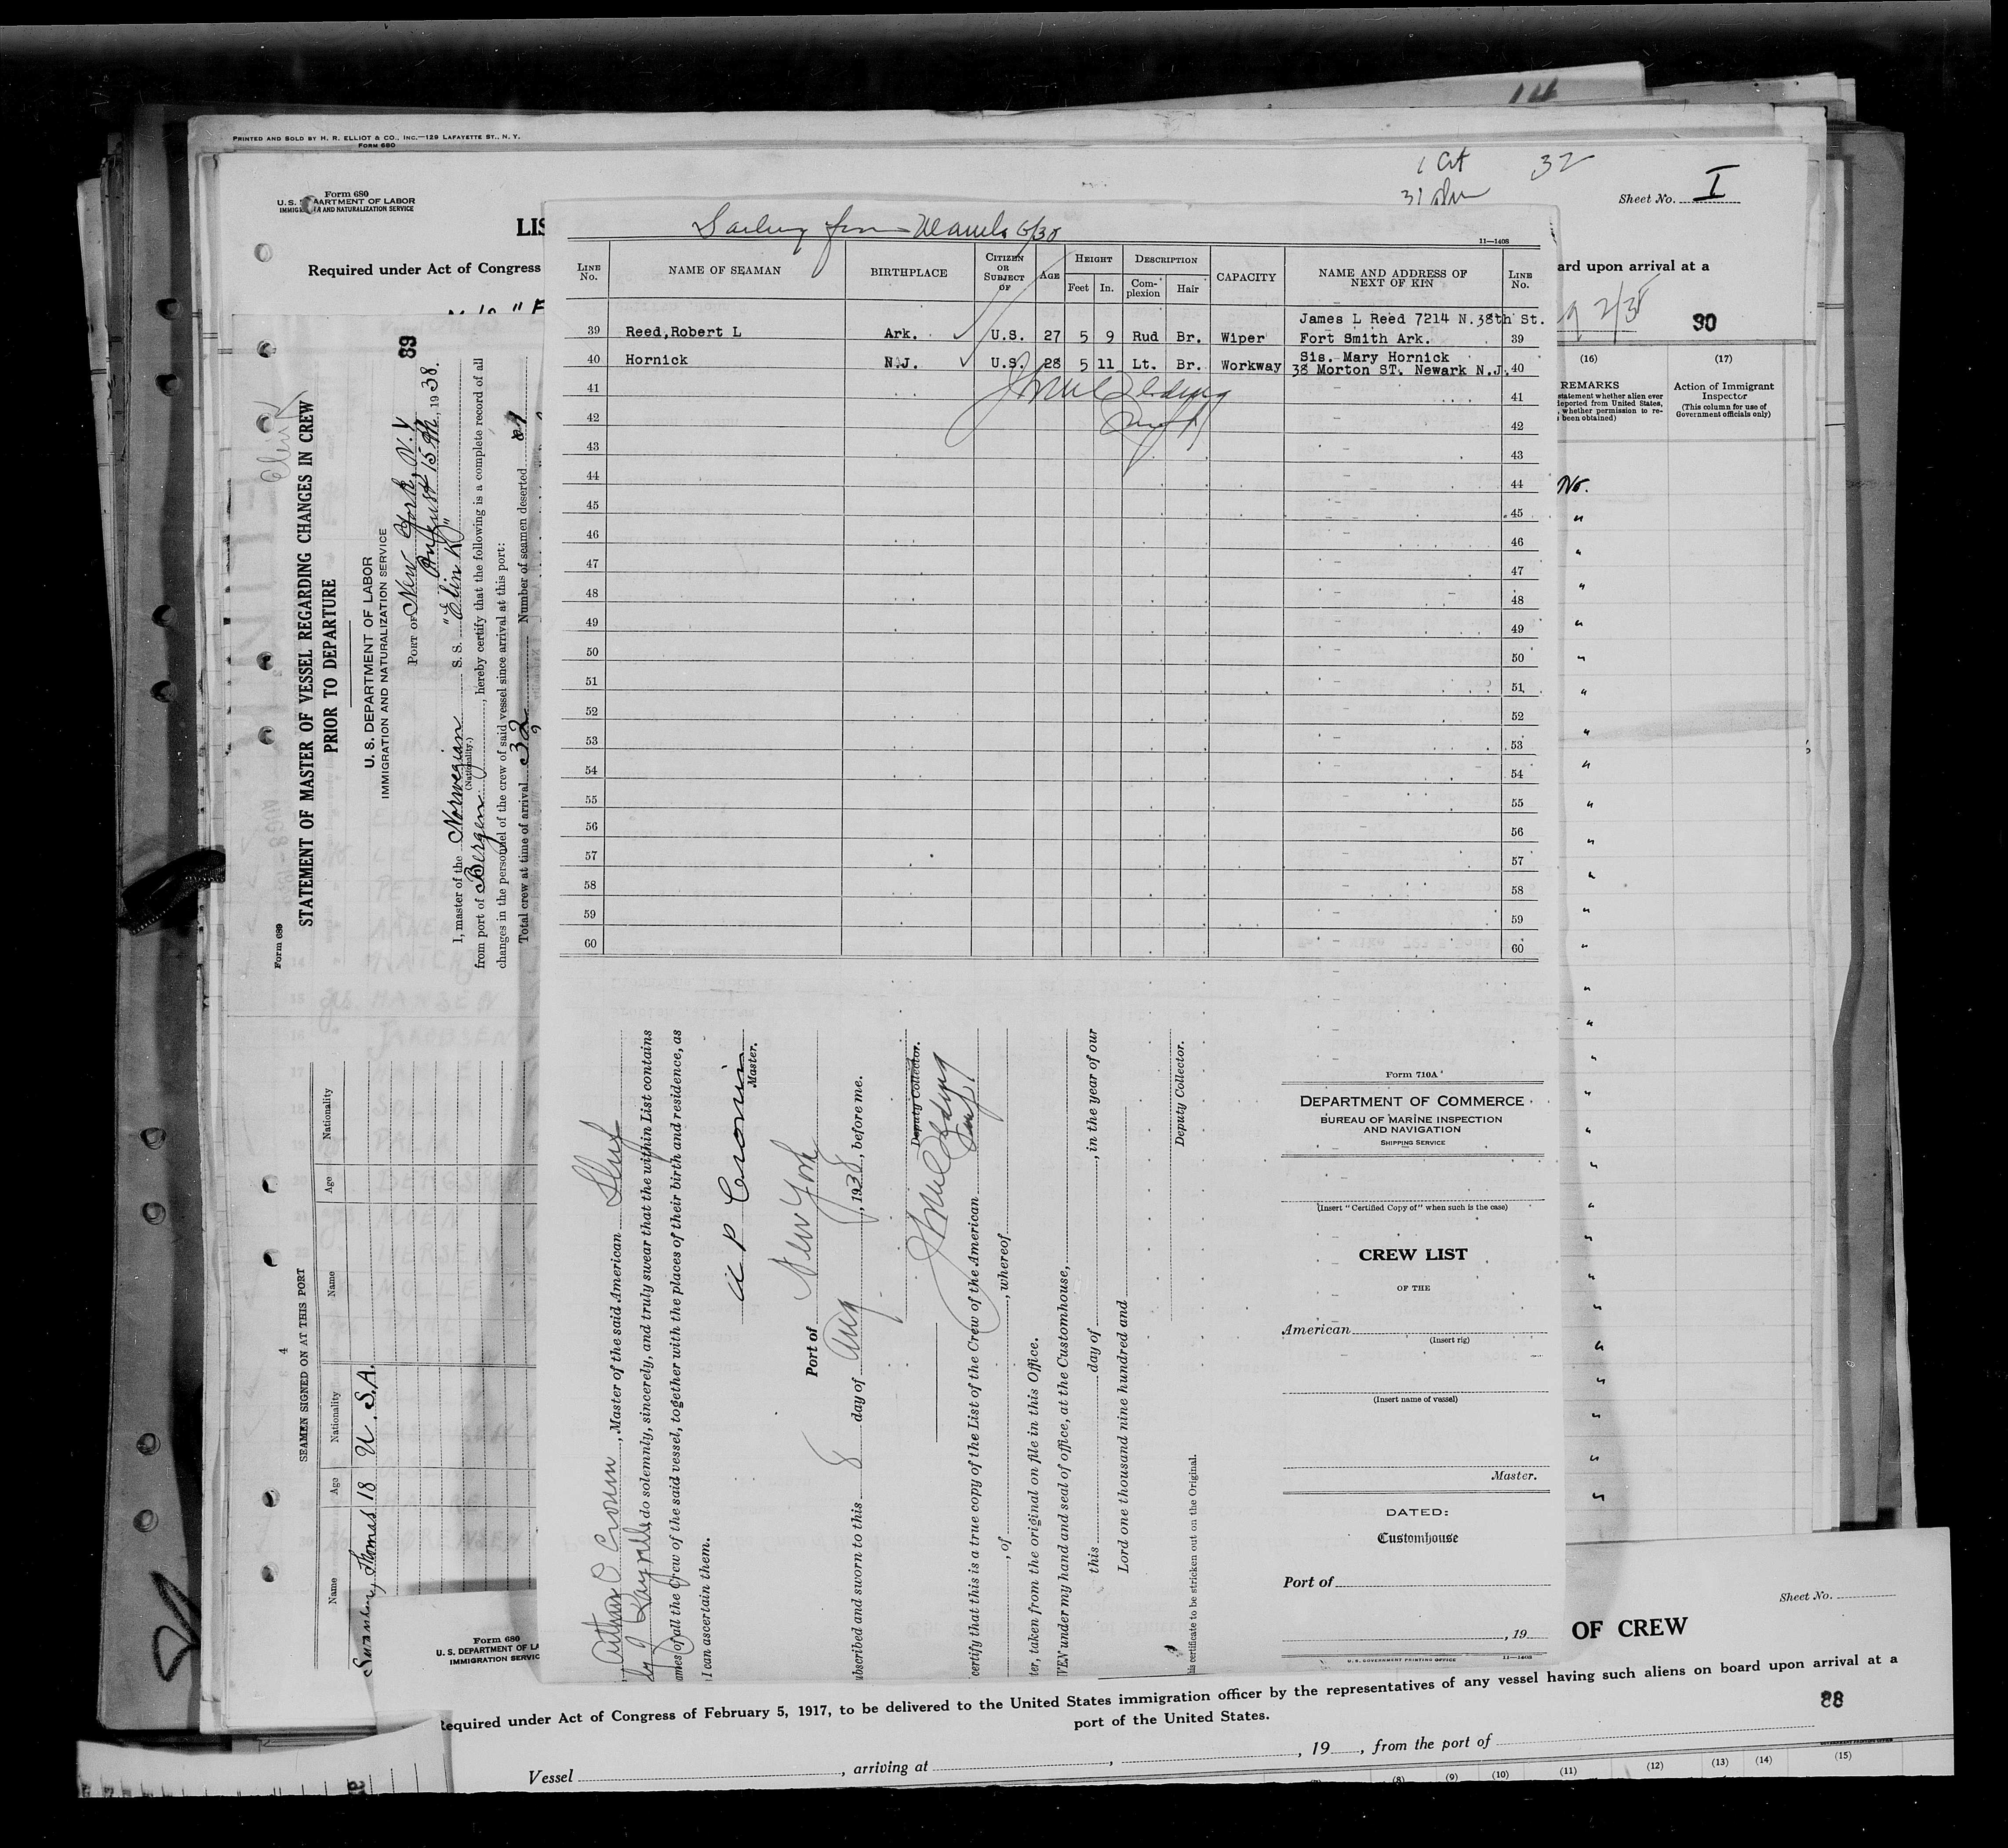 14
PRINTED AND SOLD BY H. R. ELLIOT & CO., INC.—129 LAFAYETTE ST., N. Y.
FORM 680
32
Form 680
U.S. DEPARTMENT OF LABOR
IMMIGRATION AND NATURALIZATION SERVICE
Sheet No. I
LIS
Required under Act of Congress
ard upon arrival at a
90
(16)
REMARKS
statement whether alien ever
deported from United States,
whether permission to re-
been obtained)
(17)
Action of Immigrant
Inspector
(This column for use of
Government officials only)
No.
Sailing from Manila 6/30
11—1408
LINE No. NAME OF SEAMAN BIRTHPLACE CITIZEN OR SUBJECT OF AGE HEIGHT Feet In. DESCRIPTION Com-plexion Hair CAPACITY NAME AND ADDRESS OF NEXT OF KIN LINE No.
James L Reed 7214 N.38th St.
39 Reed,Robert L Ark. U.S. 27 5 9 Rud Br. Wiper Fort Smith Ark. 39
Sis. Mary Hornick
40 Hornick N.J. U.S. 28 5 11 Lt. Br. Workway 38 Morton ST. Newark N.J. 40
41 41
42 42
43 43
44 44
45 45
46 46
47 47
48 48
49 49
50 50
51 51
52 52
53 53
54 54
55 55
56 56
57 57
58 58
59 59
60 60
, Master of the said American
do solemnly, sincerely, and truly swear that the within List contains
ames of all the Crew of the said vessel, together with the places of their birth and residence, as
I can ascertain them.
Cronin
Master.
Port of New York
ubscribed and sworn to this 8 day of Aug, 1938, before me.
Deputy Collector.
certify that this is a true copy of the List of the Crew of the American
, of , whereof
ter, taken from the original on file in this Office.
VEN under my hand and seal of office, at the Customhouse,
this day of , in the year of our
Lord one thousand nine hundred and
Deputy Collector.
his certificate to be stricken out on the Original.
Form 710A
DEPARTMENT OF COMMERCE
BUREAU OF MARINE INSPECTION
AND NAVIGATION
SHIPPING SERVICE
(Insert "Certified Copy of" when such is the case)
CREW LIST
OF THE
American
(Insert rig)
(Insert name of vessel)
Master.
DATED:
Customhouse
Port of
, 19
U. S. GOVERNMENT PRINTING OFFICE 11—1408
89
Form 689
STATEMENT OF MASTER OF VESSEL REGARDING CHANGES IN CREW
PRIOR TO DEPARTURE
U. S. DEPARTMENT OF LABOR
IMMIGRATION AND NATURALIZATION SERVICE
PORT OF New York, N.Y.
August 15th, 1938.
I, master of the Norwegian S. S. "Elin K"
(Nationality.)
from port of Bergen, hereby certify that the following is a complete record of all
changes in the personnel of the crew of said vessel since arrival at this port:
Total crew at time of arrival 32 Number of seamen deserted
4
SEAMEN SIGNED ON AT THIS PORT
Name Age Nationality Name Age Nationality
Thomas 18 U.S.A.
Form 680
U. S. DEPARTMENT OF LA
IMMIGRATION SERVIC
Sheet No.
OF CREW
Required under Act of Congress of February 5, 1917, to be delivered to the United States immigration officer by the representatives of any vessel having such aliens on board upon arrival at a
port of the United States.
88
Vessel , arriving at , , 19 , from the port of
(8) (9) (10) (11) (12) (13) (14) (15)